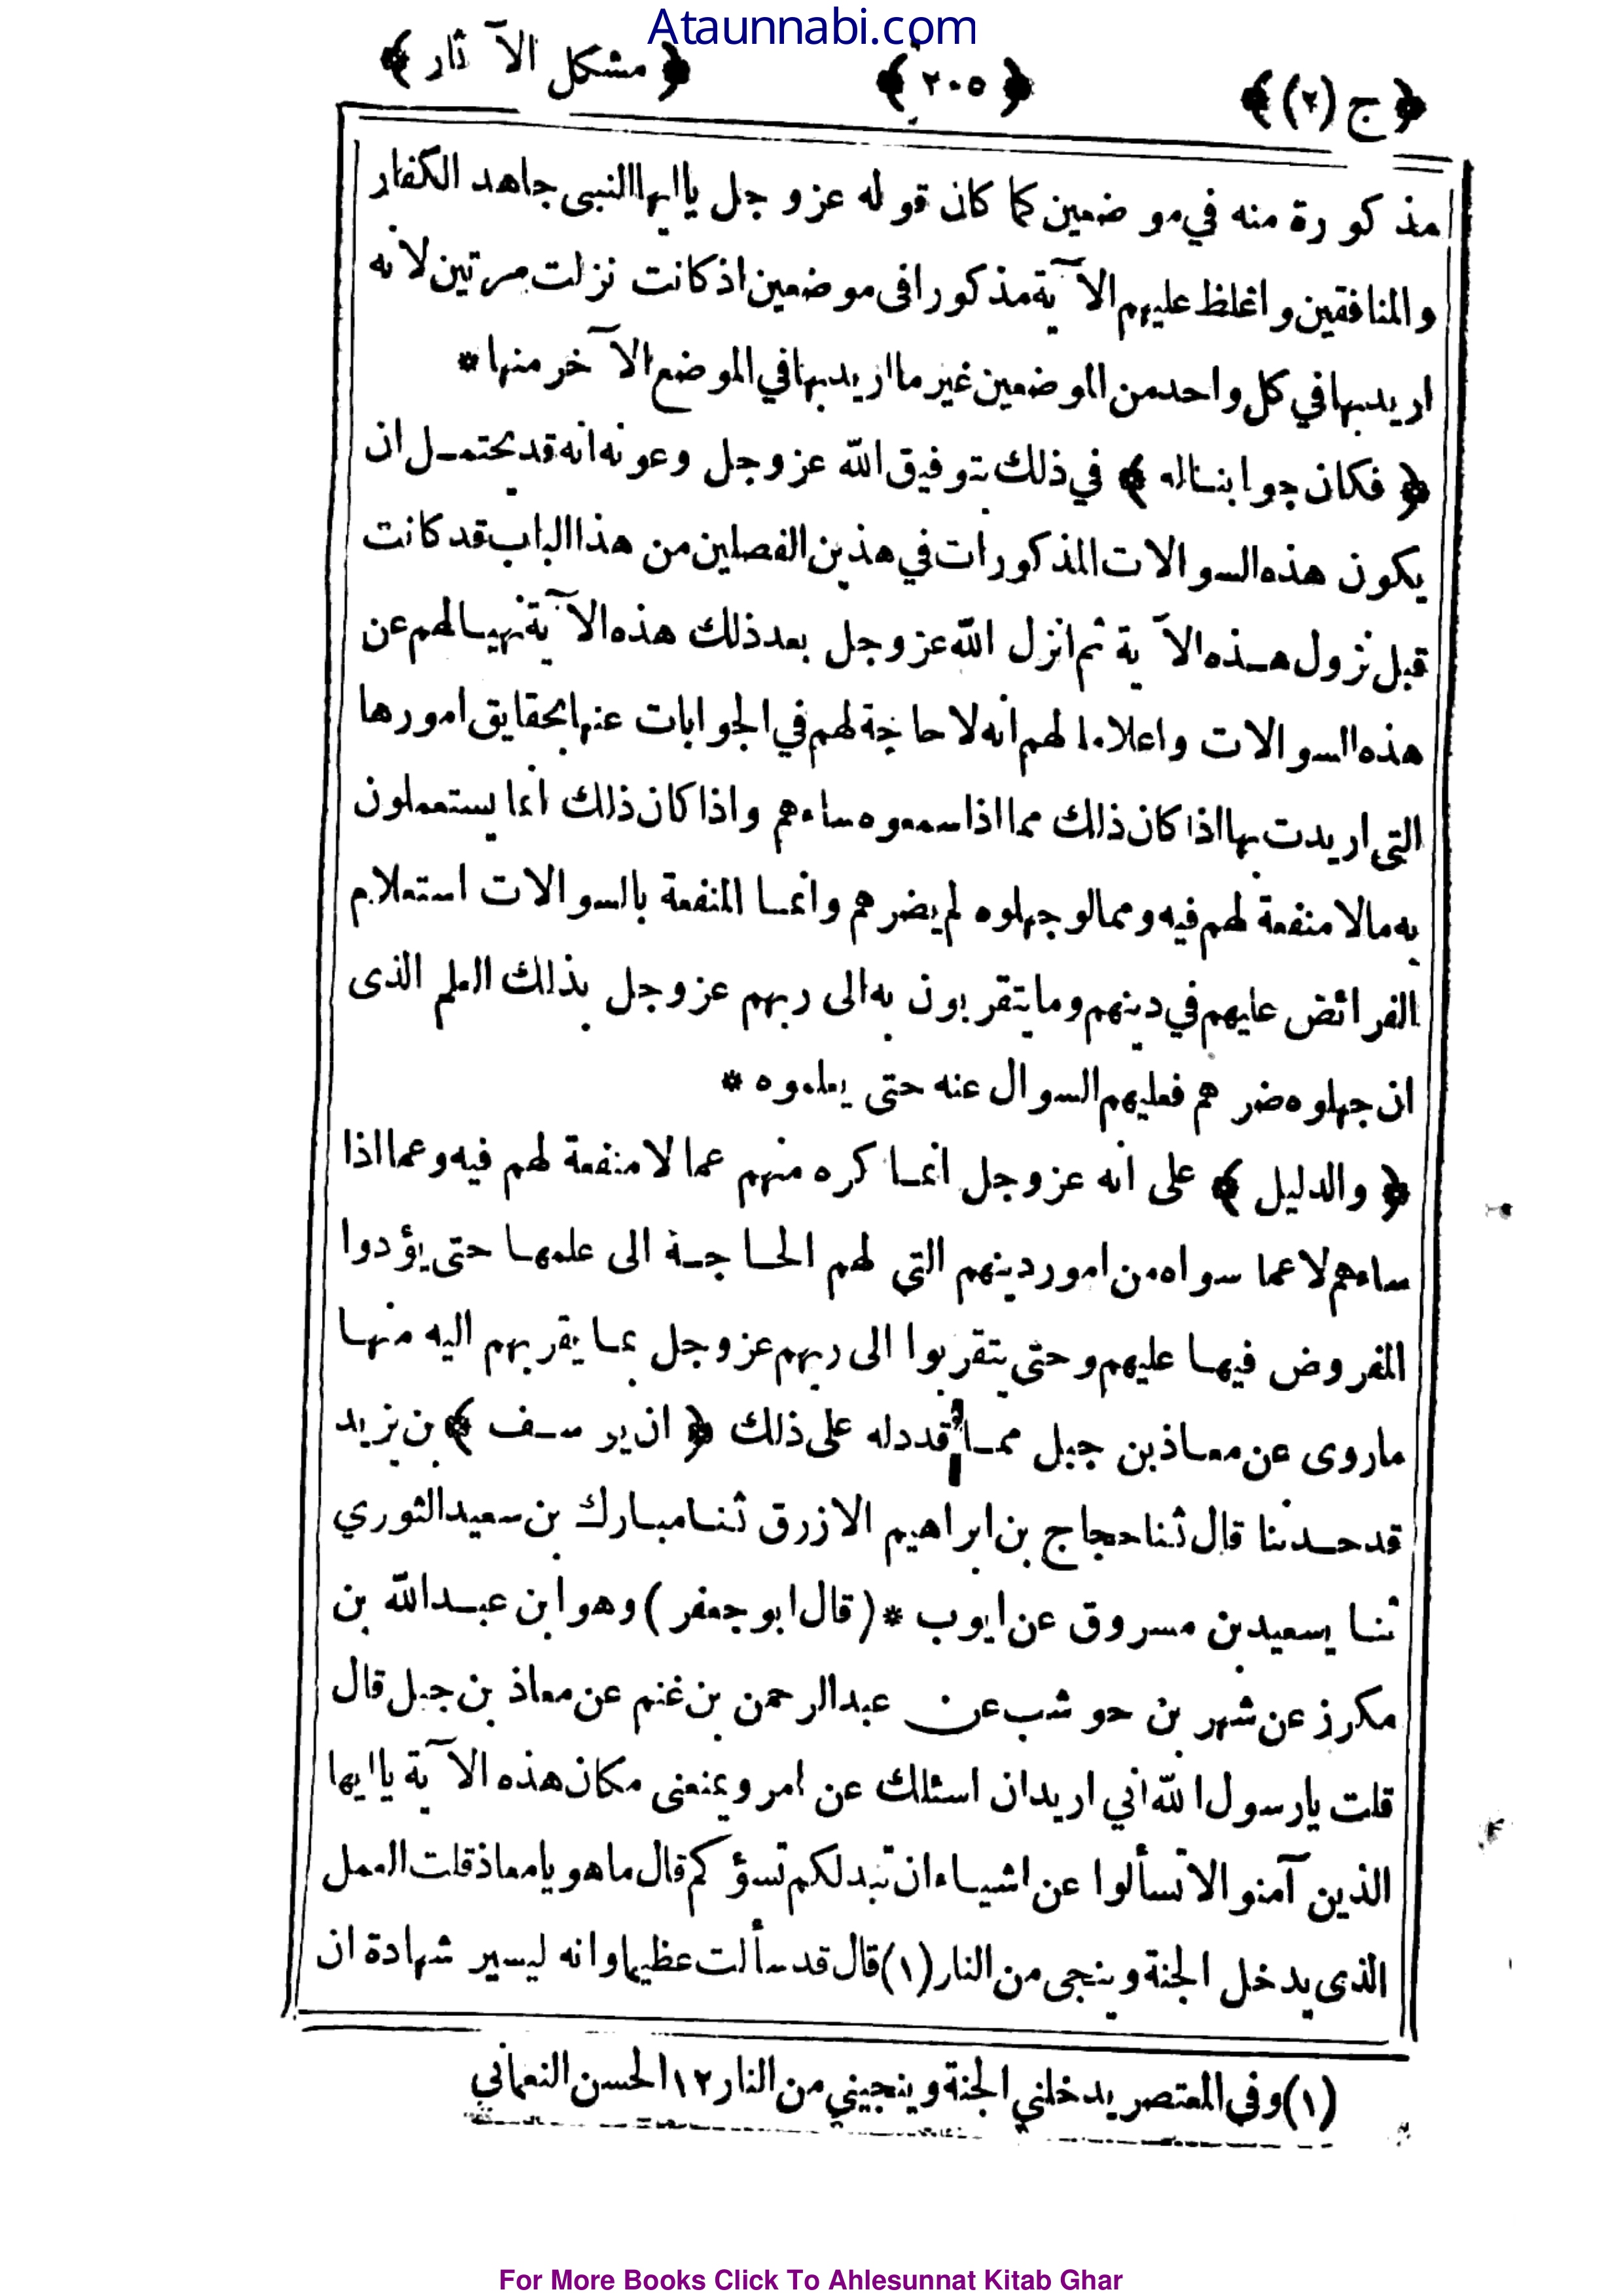 Ataunnabi.com
﴿ ج (٢) ﴾ ﴿ ٢٠٥ ﴾ ﴿ مشكل الآثار ﴾
مذكورة منه في موضعين كما كان قوله عز وجل يا ايها النبى جاهد الكفار
والمنافقين واغلظ عليهم الآية مذكورا فى موضعين اذ كانت نزلت مرتين لانه
اريد بها في كل واحد من الموضعين غير ما اريد بها في الموضع الآخر منها *
﴿ فكان جوابنا له ﴾ في ذلك بتوفيق الله عز وجل وعونه انه قد يحتمل ان
يكون هذه السوالات المذكورات في هذين الفصلين من هذا الباب قد كانت
قبل نزول هذه الآية ثم انزل الله عز وجل بعد ذلك هذه الآية نهيا لهم عن
هذه السوالات واعلاما لهم انه لا حاجة لهم في الجوابات عنها بحقايق امورها
التى اريدت بها اذا كان ذلك مما اذا سمعوه ساءهم واذا كان ذلك انما يستعملون
به مالا منفعة لهم فيه ومما لو جهلوه لم يضرهم وانما المنفعة بالسوالات استعلام
الفرائض عليهم في دينهم وما يتقربون به الى ربهم عز وجل بذلك العلم الذى
ان جهلوه ضرهم فعليهم السوال عنه حتى يعلموه *
﴿ والدليل ﴾ على انه عز وجل انما كره منهم عما لا منفعة لهم فيه وعما اذا
ساءهم لا عما سواه من امور دينهم التى لهم الحاجة الى علمها حتى يؤدوا
المفروض فيها عليهم وحتى يتقربوا الى ربهم عز وجل بما يقربهم اليه منها
ماروى عن معاذ بن جبل مما قد دله على ذلك ﴿ ان يوسف ﴾ بن يزيد
قد حدثنا قال ثنا حجاج بن ابراهيم الازرق ثنا مبارك بن سعيد الثوري
ثنا سعيد بن مسروق عن ايوب * (قال ابو جعفر) وهو ابن عبد الله بن
مكرز عن شهر بن حوشب عن عبد الرحمن بن غنم عن معاذ بن جبل قال
قلت يا رسول الله اني اريد ان اسئلك عن امر ويمنعنى مكان هذه الآية يا ايها
الذين آمنوا لا تسألوا عن اشياء ان تبد لكم تسؤكم قال ما هو يا معاذ قلت العمل
الذى يدخل الجنة وينجى من النار (١) قال قد سألت عظيما وانه ليسير شهادة ان
(١) وفي المعتصر يدخلني الجنة وينجيني من النار ١٢ الحسن النعماني
For More Books Click To Ahlesunnat Kitab Ghar